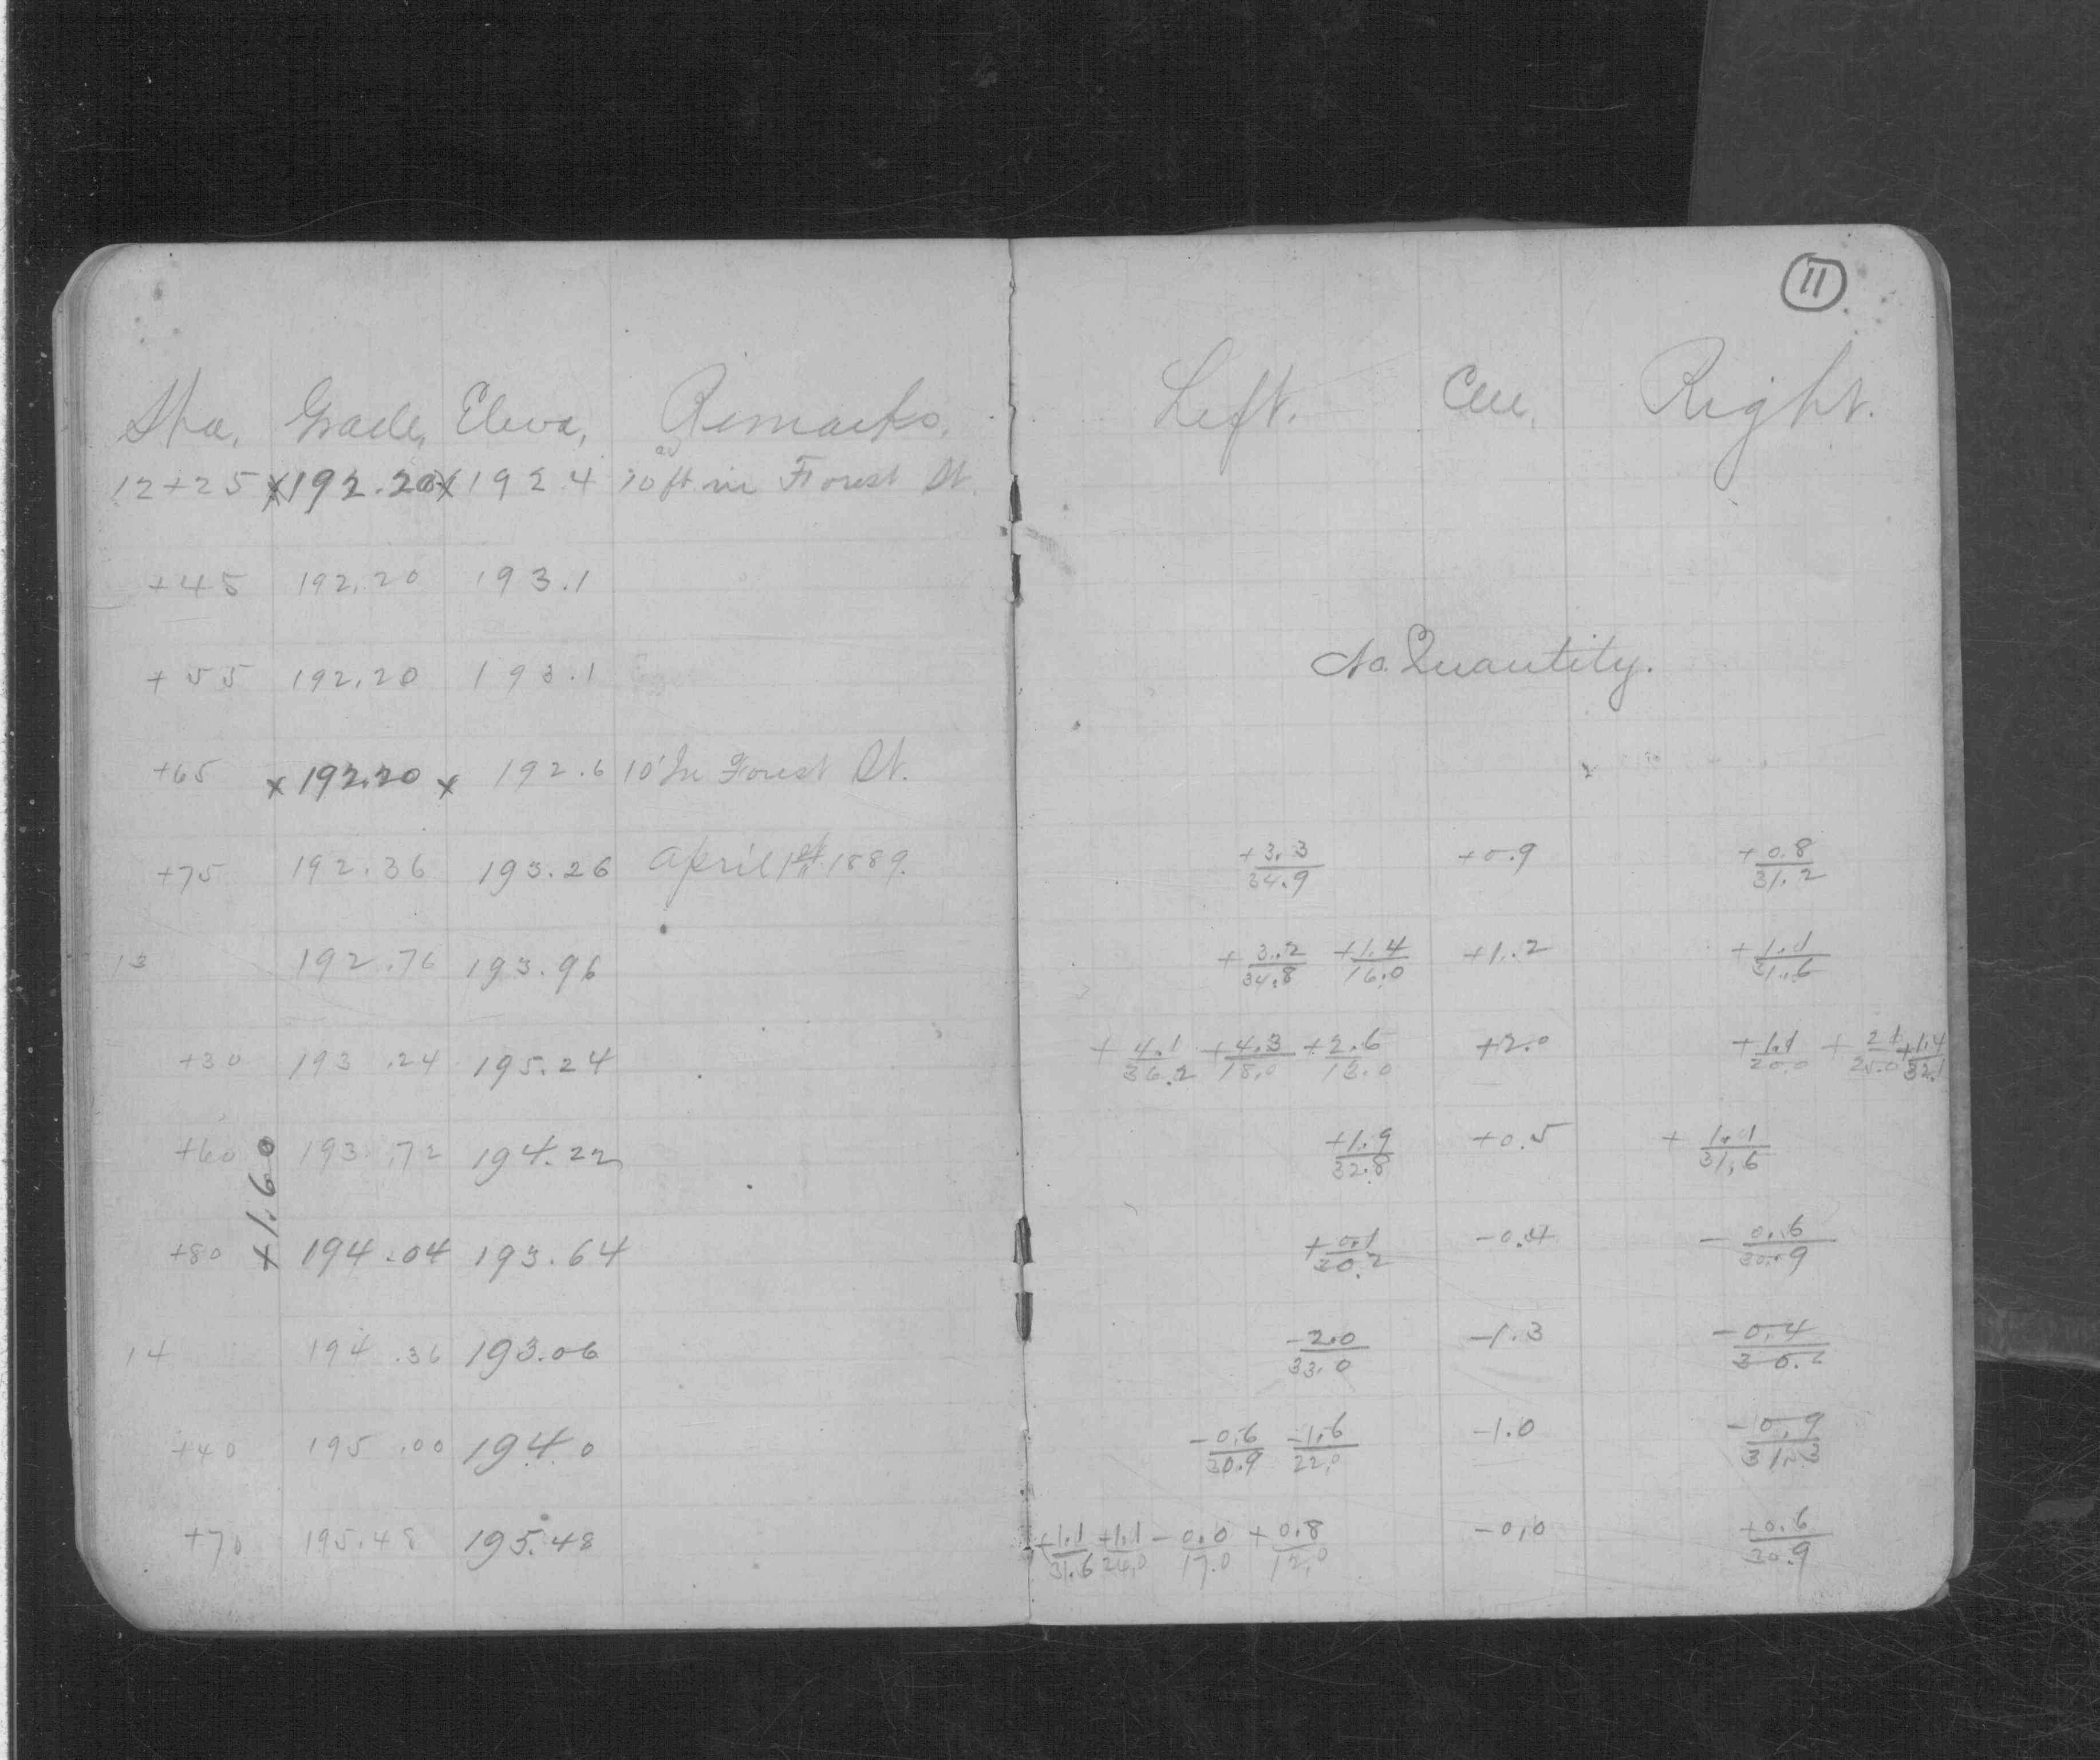 11
Sta. Grade, Eleva, Remarks. Left. Cen. Right.
12+25 x192.20x 192.4 10 ft in Forest St.
+45 192.20 193.1
+55 192.20 193.1 No Quantity.
+65 x 192.20 x 192.6 10' In Forest St.
+75 192.36 193.26 April 1st 1889. +3.3/34.9 +0.9 +0.8/31.2
13 192.76 193.96 +3.2/34.8 +1.4/16.0 +1.2 +1.1/31.6
+30 193.24 195.24 +4.1/36.2 +4.3/18.0 +2.6/13.0 +2.0 +1.1/20.0 +2.1/25.0 +1.4/32.1
+60 193.72 194.22 +1.9/32.8 +0.5 +1.1/31.6
+1.60
+80 194.04 193.64 +0.1/30.2 -0.4 -0.6/30.9
14 194.36 193.06 -2.0/33.0 -1.3 -0.4/30.2
+40 195.00 194.0 -0.6/30.9 -1.6/22.0 -1.0 -0.9/31.3
+70 195.48 195.48 +1.1/31.6 +1.1/26.0 -0.0/17.0 +0.8/12.0 -0.0 +0.6/30.9